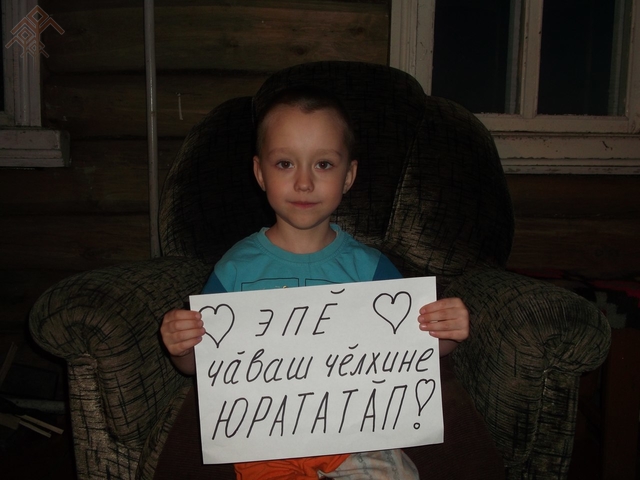 ЭПӖ
чӑваш чӗлхине
ЮРАТАТӐП!